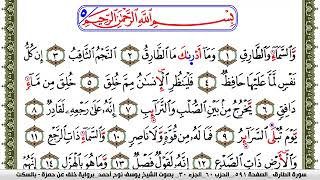 بِسْمِ اللَّهِ الرَّحْمَٰنِ الرَّحِيمِ
وَالسَّمَآءِ وَالطَّارِقِ ١ وَمَآ أَدْرَىٰكَ مَا الطَّارِقُ ٢ النَّجْمُ الثَّاقِبُ ٣ إِن كُلُّ
نَفْسٍ لَّمَّا عَلَيْهَا حَافِظٌ ٤ فَلْيَنظُرِ الْإِنسَٰنُ مِمَّ خُلِقَ ٥ خُلِقَ مِن مَّآءٍ
دَافِقٍ ٦ يَخْرُجُ مِنۢ بَيْنِ الصُّلْبِ وَالتَّرَآئِبِ ٧ إِنَّهُ عَلَىٰ رَجْعِهِ لَقَادِرٌ ٨
يَوْمَ تُبْلَى السَّرَآئِرُ ٩ فَمَا لَهُ مِن قُوَّةٍ وَلَا نَاصِرٍ ١٠ وَالسَّمَآءِ ذَاتِ الرَّجْعِ ١١
وَالْأَرْضِ ذَاتِ الصَّدْعِ ١٢ إِنَّهُ لَقَوْلٌ فَصْلٌ ١٣ وَمَا هُوَ بِالْهَزْلِ ١٤ إِنَّهُمْ
سورة الطارق - الصفحة ٥٩١ - الحزب ٦٠ - الجزء ٣٠ - بصوت الشيخ يوسف نوح أحمد - برواية خلف عن حمزة - بالسكت